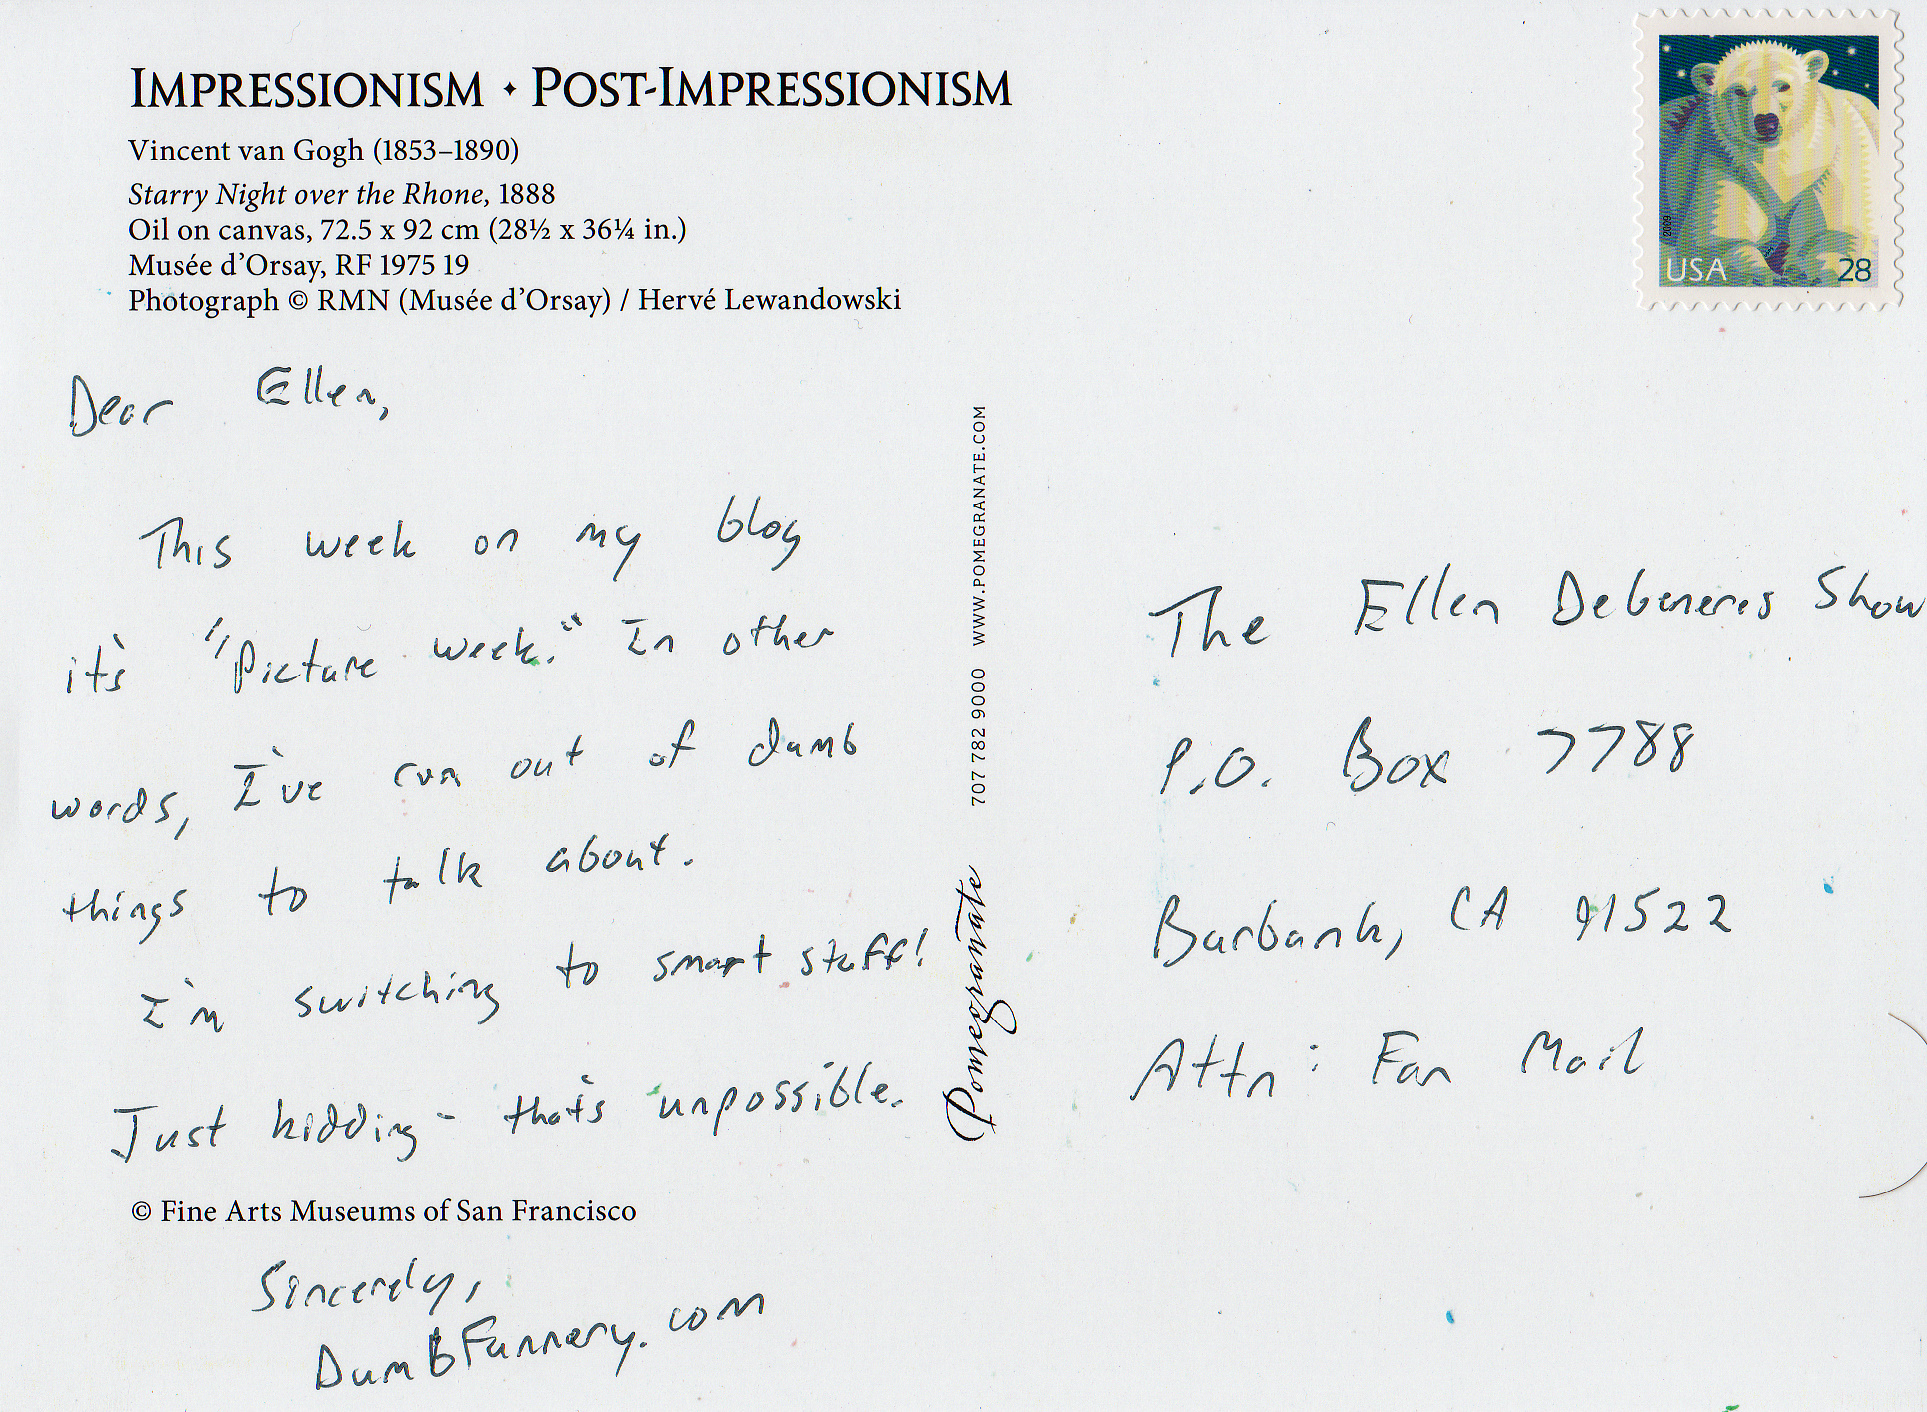 IMPRESSIONISM ✦ POST-IMPRESSIONISM
Vincent van Gogh (1853–1890)
Starry Night over the Rhone, 1888
Oil on canvas, 72.5 x 92 cm (28½ x 36¼ in.)
Musée d'Orsay, RF 1975 19
Photograph © RMN (Musée d'Orsay) / Hervé Lewandowski
2009
USA 28
Dear Ellen,
This week on my blog
it's "Picture week." In other
words, I've run out of dumb
things to talk about.
I'm switching to smart stuff!
Just kidding - that's unpossible.
© Fine Arts Museums of San Francisco
Sincerely,
DumbFunnery.com
Pomegranate 707 782 9000 WWW.POMEGRANATE.COM
The Ellen Degeneres Show
P.O. Box 7788
Burbank, CA 91522
Attn: Fan Mail